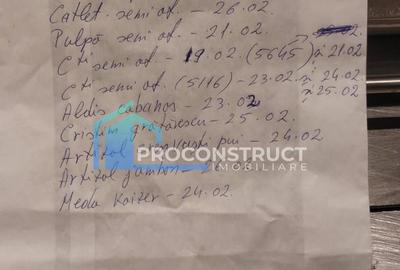 Cotlet semi af. - 26.02
Pulpă semi af. - 21.02.
Cți semi af. - 19.02. (5645) și 21.02
Cți semi af. (5116) - 23.02. și 24.02
și 25.02
Aldis cabanos - 23.02
Cristim grătărescu - 25.02.
Artizol pui - 24.02
Artizol jambon
Meda Kaizer - 24.02.
PROCONSTRUCT
IMOBILIARE